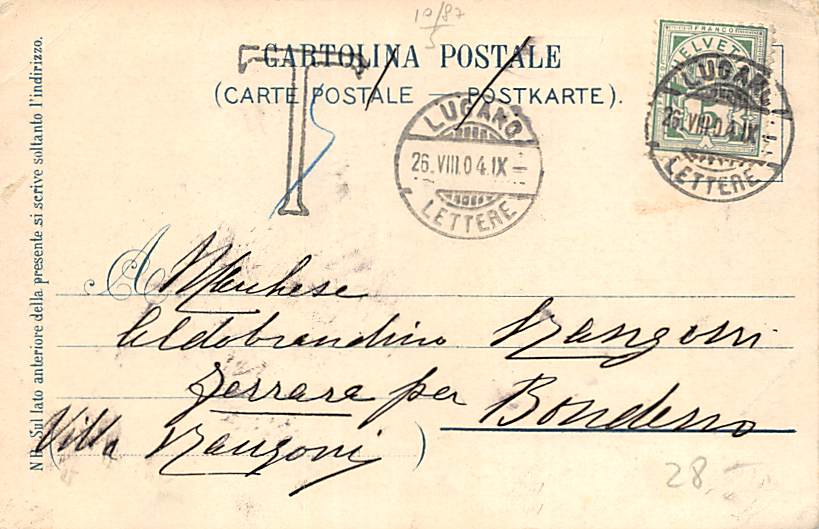 10/87
5
T
CARTOLINA POSTALE
(CARTE POSTALE — POSTKARTE).
HELVETIA
FRANCO
LUGANO
26.VIII.04.IX
LETTERE
LUGANO
26.VIII.04.IX
LETTERE
A Marchese
Aldobrandino Rangoni
Ferrara per Bondeno
(Villa Rangoni)
28.-
NB. Sul lato anteriore della presente si scrive soltanto l'indirizzo.